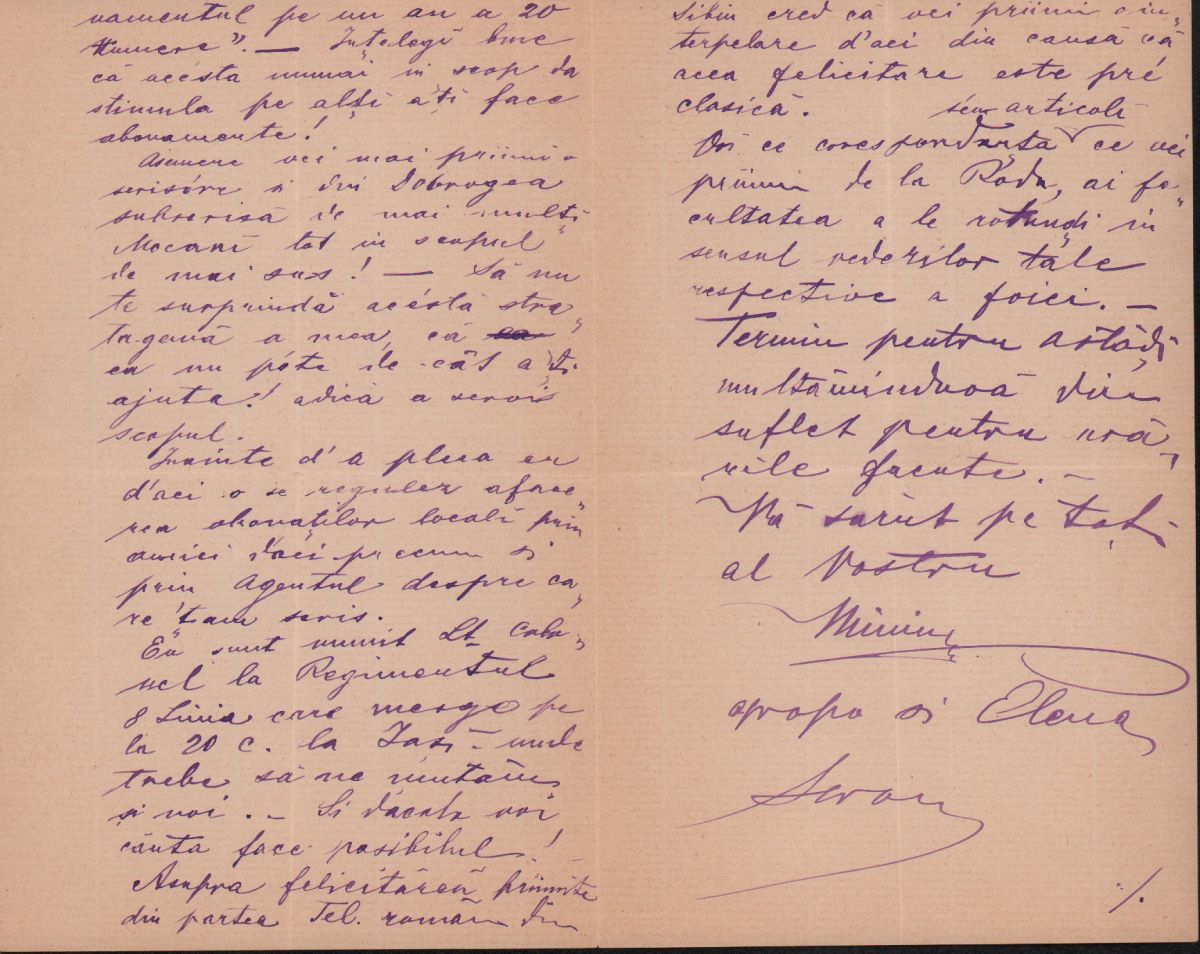 vamentul pe un an a 20
Numere". — Înțelegĭ bine
că acésta numai in scop da
stimula pe alți a'ti face
abonamente!
Asemere vei mai priimi o
scrisóre si din Dobrogea
subscrisă de mai multi
Mocanĭ tot in scopul
de mai sus! — Să nu
te surprindă acéstă stra„
tagemă a mea, că
ea nu póte de-cât a'ti
ajuta! adică a servi
scopul.
Inainte d'a pleca eu
d'aci o se regulez aface„
rea abonaților localĭ prin
amici d'aci precum si
prin Agentul despre ca„
re ț'am scris.
Eŭ sunt numit Lt. Colo„
nel la Regimentul
8 Linia care merge pe
la 20 c. la Iasĭ - unde
trebe să ne mutăm
și noi. — Si d'acolo voi
căuta face posibilul!
Asupra felicităreĭ priimite
din partea Tel. român din
Sibiu cred că vei priimi o in„
terpelare d'aci din causă că
acea felicitare este pré
clasică.
séu articole
Ori ce corespondență ce vei
priimi de la Radu, ai fa„
cultatea a le rotundi in
sensul vederilor tale
respective a foiei. —
Termin pentru astădĭ
multămindu-vă din
suflet pentru ură„
rile facute. —
Vă sarut pe toți
al Vostru
apropo si Elena
./.